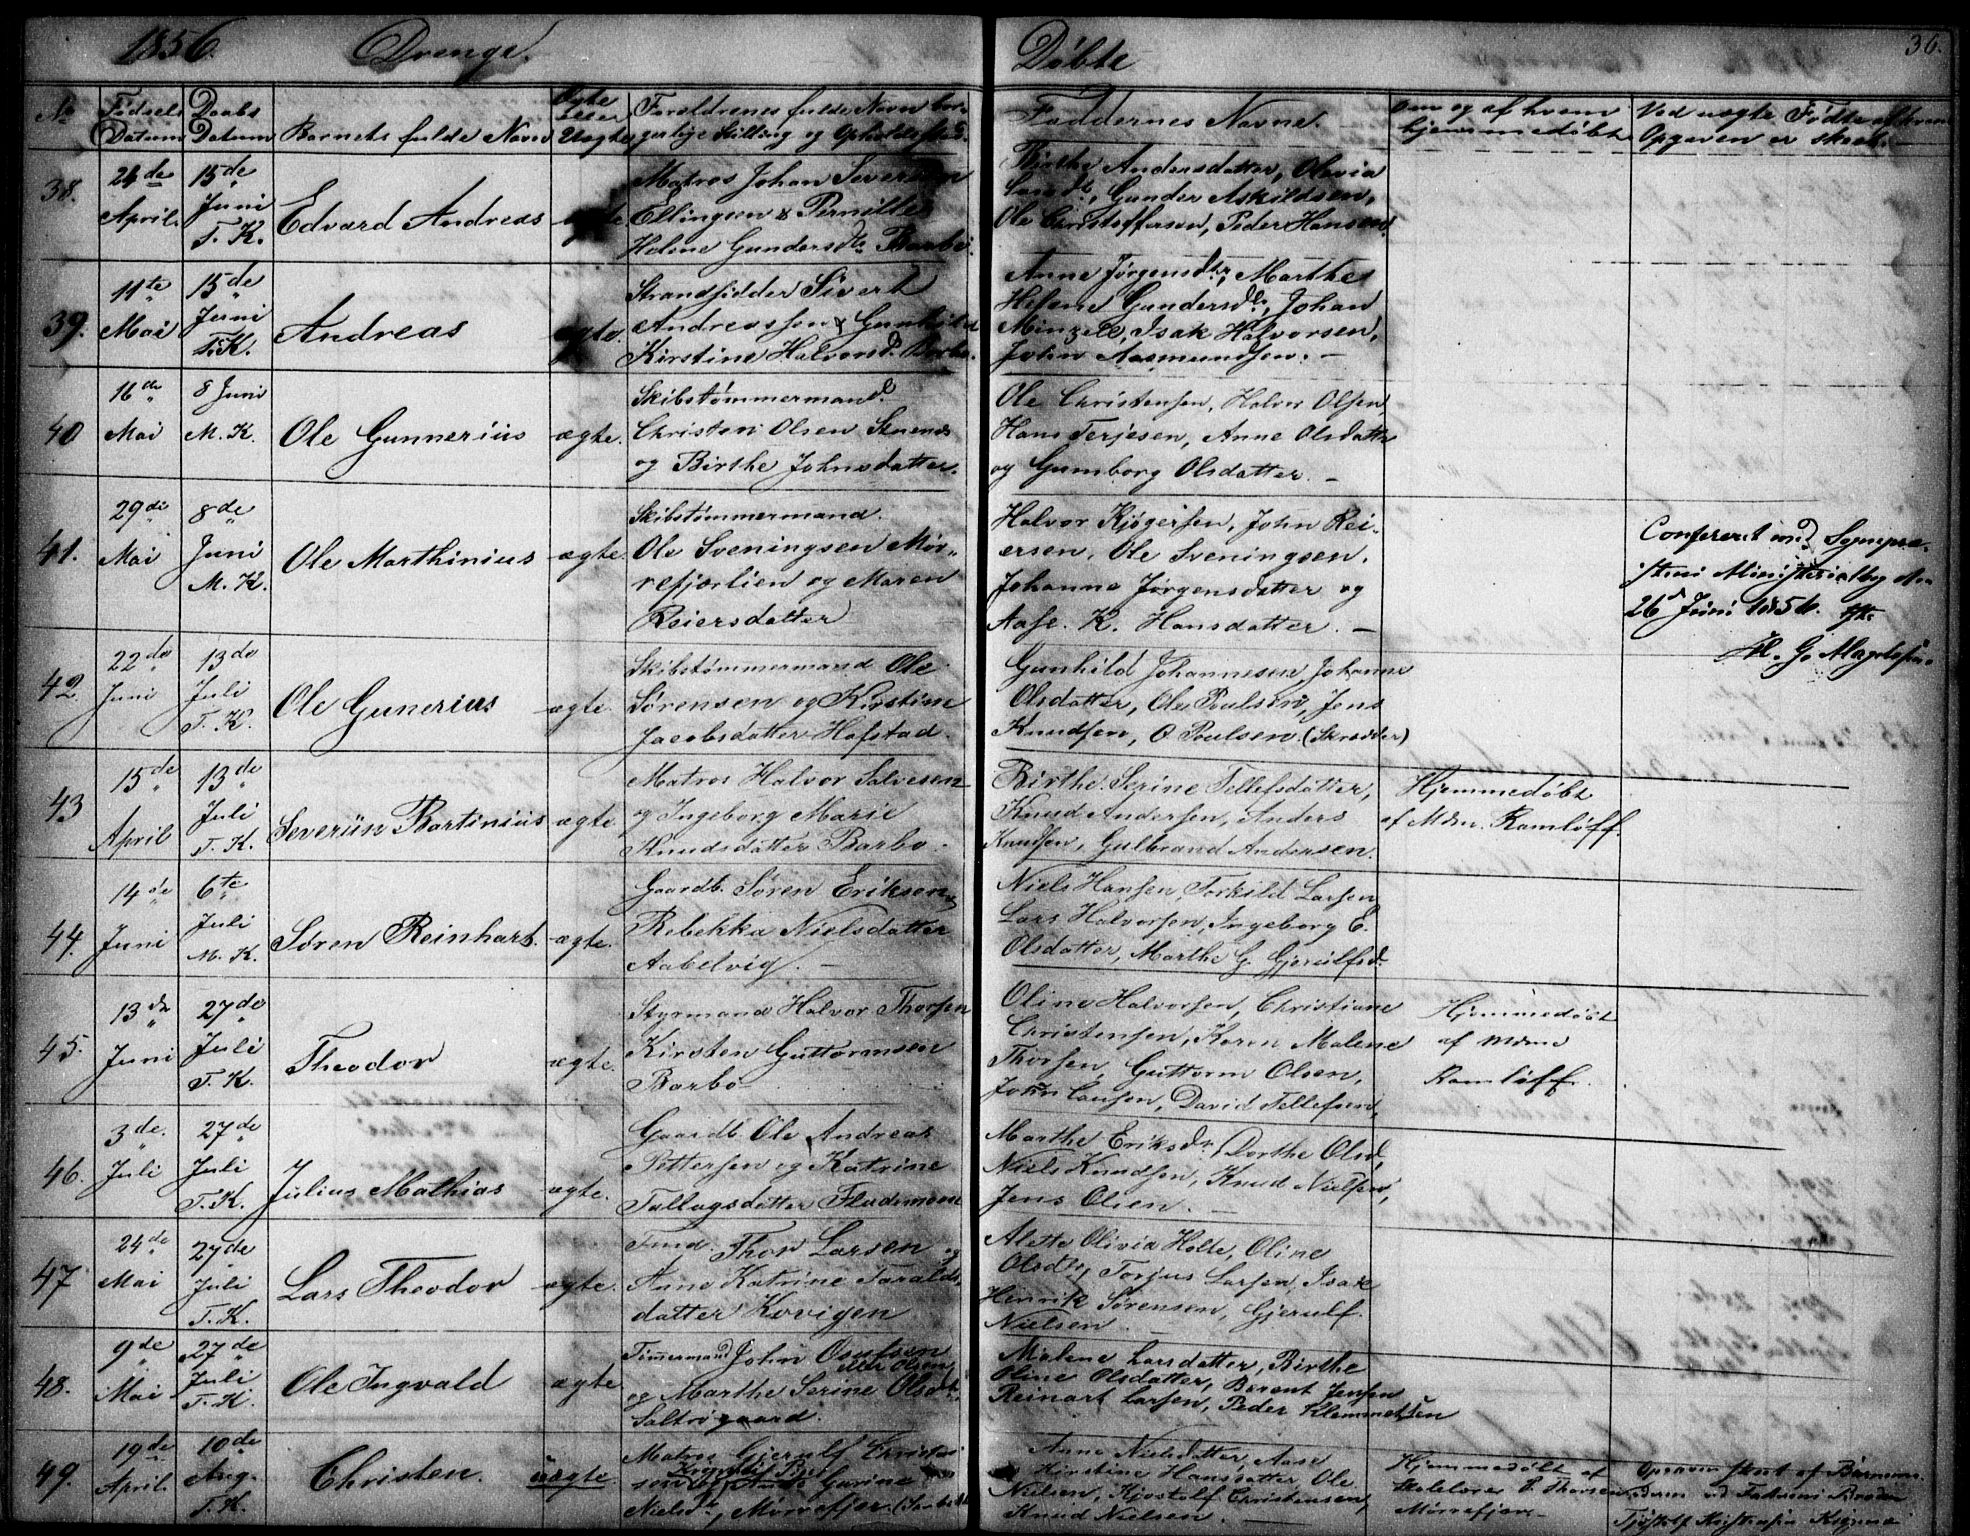 1856. Drenge.
Döbte
36.
No
Fødsels Datum
Daabs Datum
Barnets fulde Navn
Ægte eller Uægte
Forældrenes fulde Navn borgerlige Stilling og Opholdssted.
Faddernes Navne.
Om og af hvem hjemmedøbt
Ved uægte Fødte af hvem Opgaven er skeet.
38.
24de April.
15de Juni T. K.
Edvard Andreas
ægte
Matros Johan Seversen
Ellingsen & Pernille
Helene Gundersdtr Barbo.
Birthe Andersdatter, Olavia
Gunder Askildsen,
Ole Christoffersen, Peder Hansen.
39.
11te Mai
15de Juni T.K.
Andreas
ægte.
Strandsidder Sivert
Andreassen & Gunhild
Kirstine Halvorsd. Barbo.
Anne Jørgensdtr, Marthe
Helene Gundersdtr, Johan
Isak Halvorsen,
John Aasmundsen. –
40
16de Mai
8 Juni M. K.
Ole Gunnerius
ægte.
Skibstømmermand.
Christen Olsen
og Birthe Johnsdatter.
Ole Christensen, Halvor Olsen
Hans Terjesen, Anne Olsdatter
og Gumborg Olsdatter. –
41.
29de Mai
8de Juni M. K.
Ole Marthinius
ægte.
Skibstømmermand.
Ole Sveningsen Mør-
refjærlien og Maren
Reiersdatter
Halvor Kjøgersen, John Rei-
ersen, Ole Sveningsen.
Johanne Jørgensdatter og
Aase. K. Hansdatter. –
Confereret med
Ministerialbog
26 Juni 1856.
42.
22de Juni
13de Juli T. K.
Ole Gunerius
ægte.
Skibstømmermand Ole
Sørensen og Kirstine
Jacobsdatter Hafstad.
Gunhild Johannesen, Johanne
Olsdatter, Ole Poulsen, Jens
Knudsen, O Poulsen. (Skrædder)
43
15de April
13de Juli T. K.
Severiin Martinius
ægte
Matros Halvor Salvesen
og Ingeborg Marie
Knudsdatter Barbo.
Birthe Serine Tellefsdatter,
Knud Andersen, Anders
Knudsen, Gulbrand Andersen.
Hjemmedøbt
af Mdm. Ramløff.
44.
14de Juni
6te Juli M. K.
Søren Reinhart.
ægte.
Gaardb. Søren Eriksen
Rebekka Nielsdatter
Aabelvig. –
Niels Hansen, Torkild Larsen
Lars Halvorsen, Ingeborg E.
Olsdatter, Marthe G. Gjerulfsd.
45.
13de Juni
27de Juli T. K.
Theodor
ægte.
Styrmand Halvor Thorsen
Kirsten Guttormsen
Barbo
Oline Halvorsen, Christiane
Christensen, Karen Malene
Thorsen, Guttorm Olsen,
John David Tellefsen,
Hjemmedøbt
af Mdme
Ramløff.
46.
3de. Juli
27de Juli T. K.
Julius Mathias
ægte.
Gaardb. Ole Andreas
Pettersen og Katrine
Tallagsdatter Flademoen
Marthe Eriksdtr, Dorthe Olsd,
Niels Knudsen, Knud Nielsen,
Jens Olsen. –
47.
24de Mai
27de Juli T. K.
Lars Theodor
ægte.
Thor Larsen og
Anne Katrine Taralds-
datter Kovigen
Alette Olivia Holte, Oline
Olsdtr, Torjus Larsen, Isak
Henrik Sørensen, Gjerulf
Nielsen
48.
9de Mai
27de Juli T. K.
Ole Ingvald
ægte
Tømmermand John Osulsen
eller Olsen
og Marthe Serine Olsdtr
Saltrøgaard.
Malene Larsdatter, Birthe
Oline Olsdatter, Berent Jensen
Reinart Larsen, Peder Klemmetsen
49.
19de April.
10de Aug. T. K.
Christen.
uægte.
Matros Gjerulf Christen-
sen og Gurine
Nielsdtr, Mørrefjær
Anne Nielsdatter, Aase
Kirstine Hansdatter Ole
Nielsen, Kjøstolf Christensen,
Knud Nielsen. –
Hjemmedøbt af
Skolelærer P. Thorsen
Mørrefjær.
Opgaven skeet af